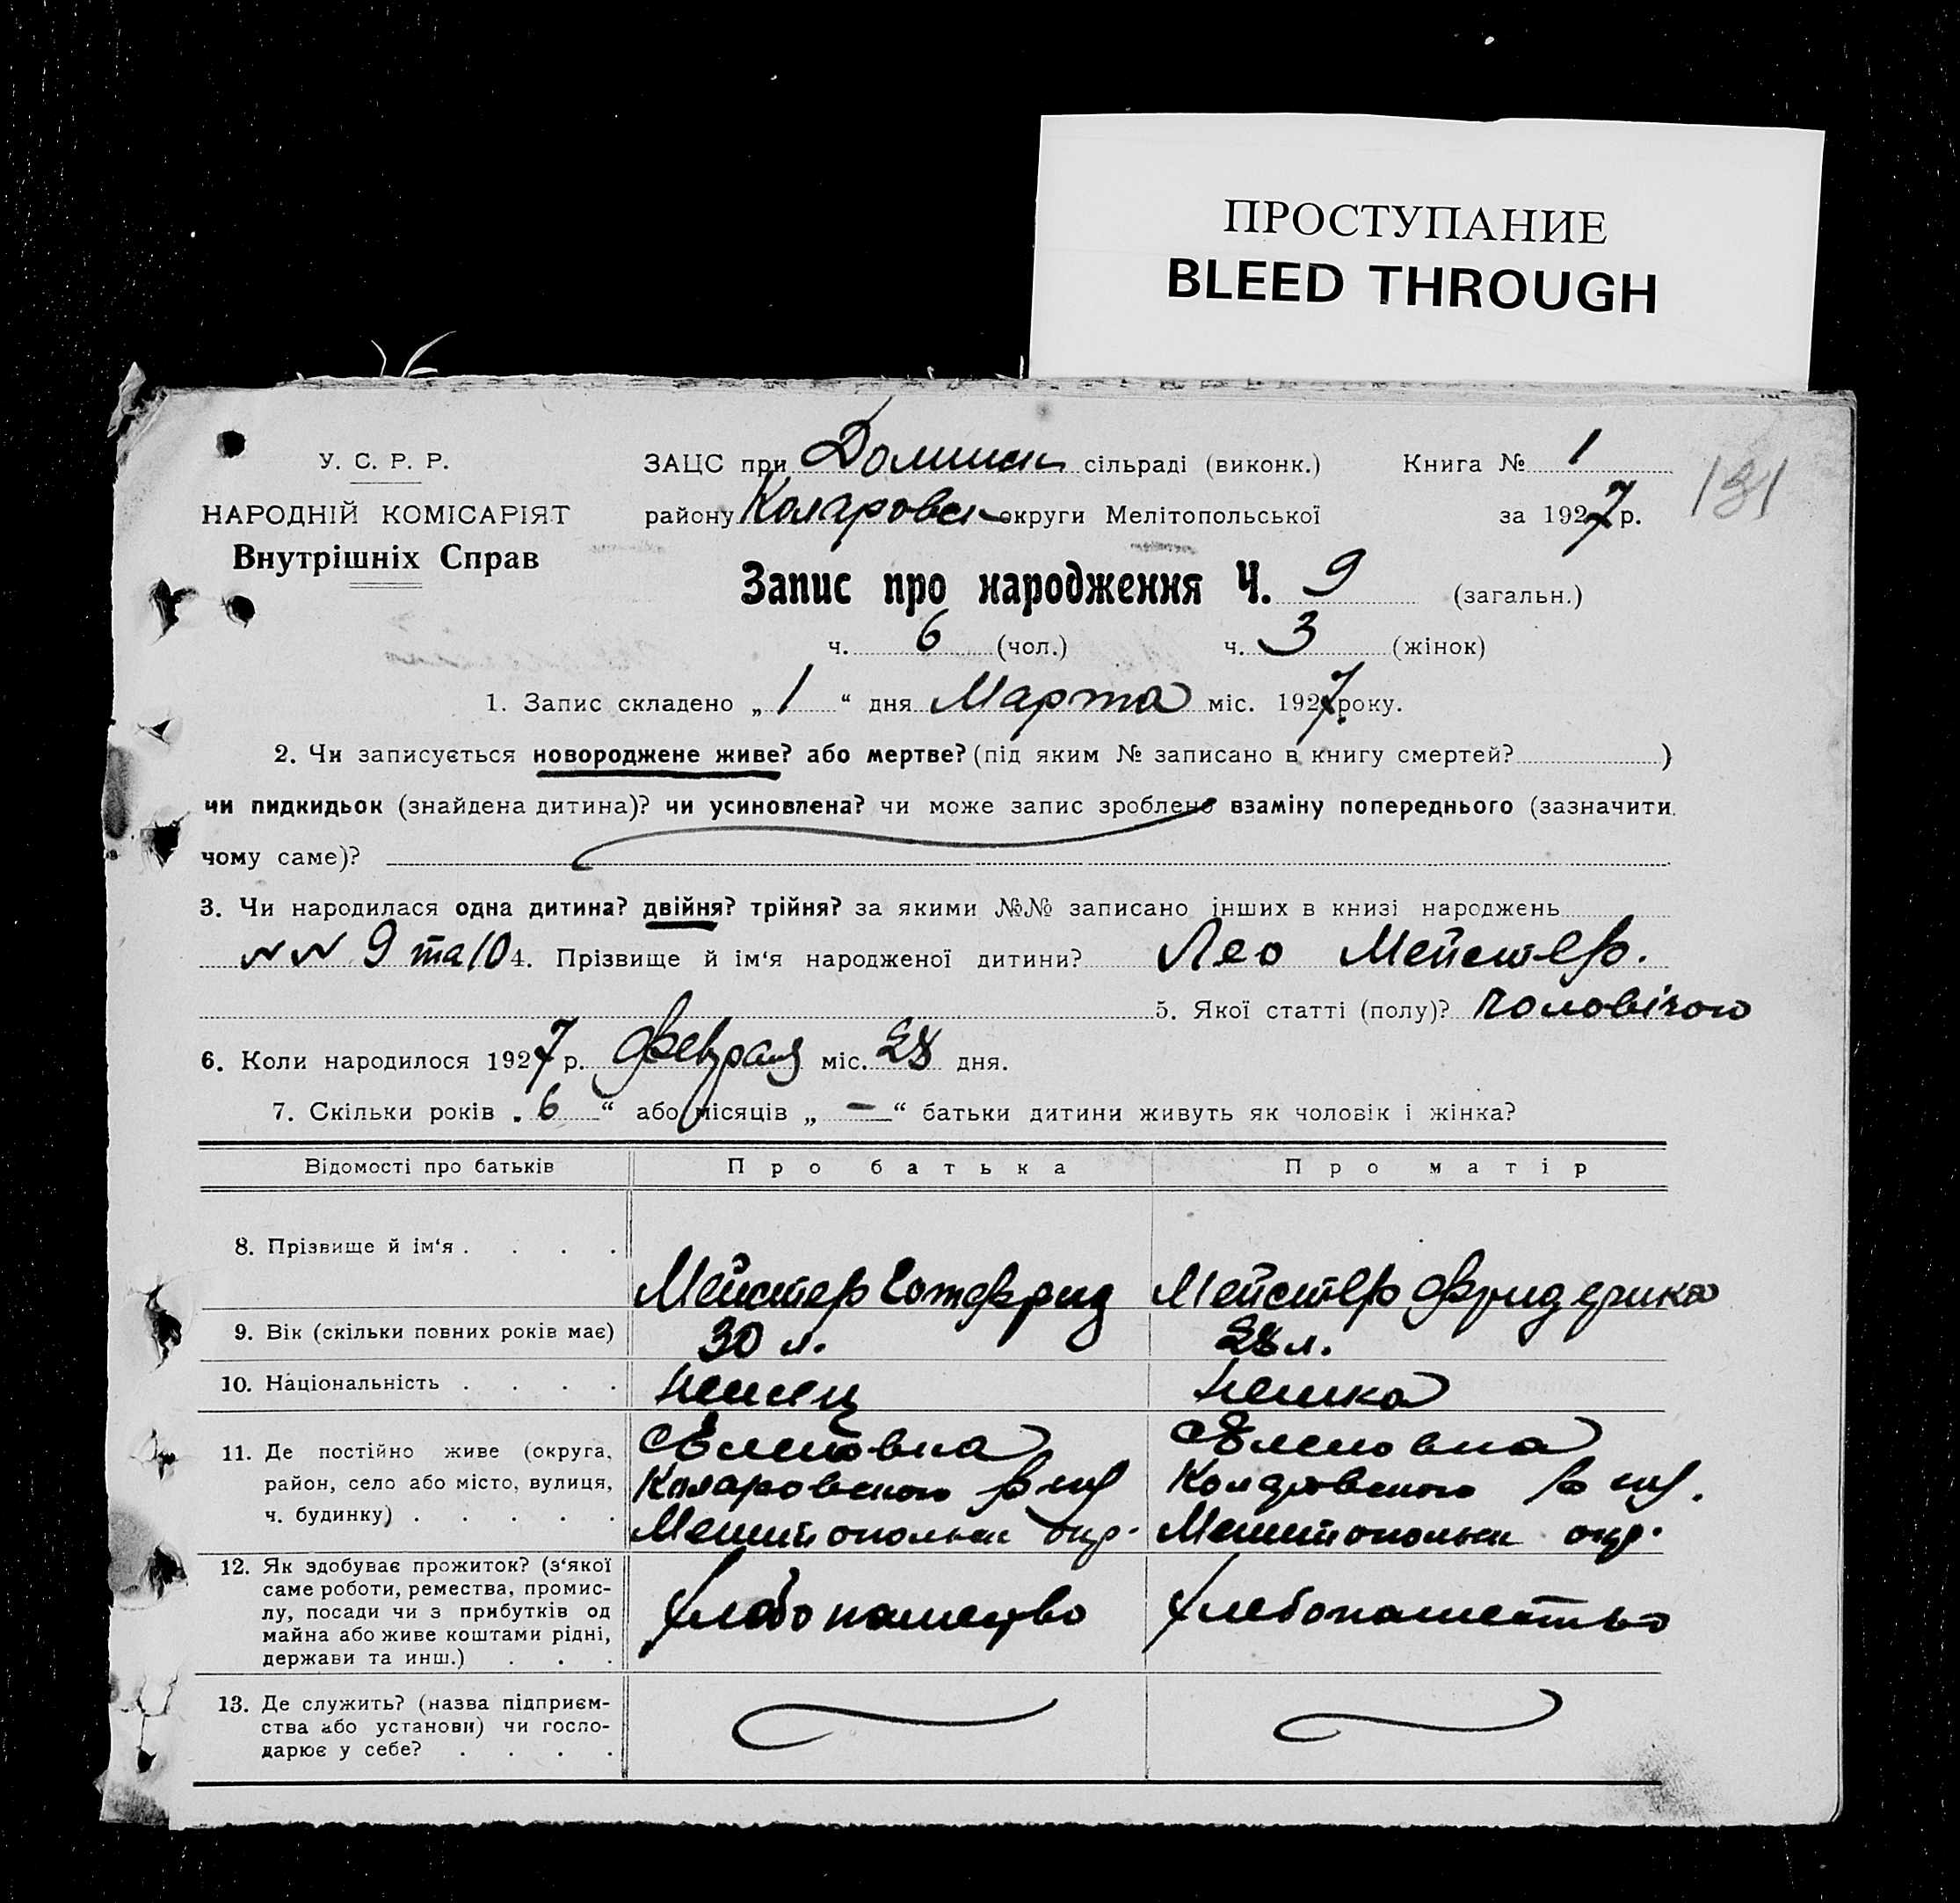 ПРОСТУПАНИЕ
BLEED THROUGH
У. С. Р. Р.
НАРОДНІЙ КОМІСАРІЯТ
Внутрішніх Справ
ЗАЦС при сільраді (виконк.) Книга № 1
району Коларовск округи Мелітопольської за 1927 р.
181
Запис про народження Ч. 9 (загальн.)
ч. 6 (чол.) ч. 3 (жінок)
1. Запис складено „ 1 “ дня Марта міс. 1927 року.
2. Чи записується новороджене живе? або мертве? (під яким № записано в книгу смертей? )
чи пидкидьок (знайдена дитина)? чи усиновлена? чи може запис зроблено взаміну попереднього (зазначити
чому саме)?
3. Чи народилася одна дитина? двійня? трійня? за якими №№ записано інших в книзі народжень
№ № 9 та 10 4. Прізвище й ім‘я народженої дитини? Лео Мейстер.
5. Якої статті (полу)? чоловічою
6. Коли народилося 1927 р. Февраля міс. 28 дня.
7. Скільки років „ 6 “ або місяців „ — “ батьки дитини живуть як чоловік і жінка?
Відомості про батьків Про батька Про матір
8. Прізвище й ім‘я . . . . Мейстер Готфрид Мейстер Фридерика
9. Вік (скільки повних років має) 30 л. 28 л.
10. Національність . . . . немец немка
11. Де постійно живе (округа,
район, село або місто, вулиця,
ч. будинку) . . . . .
Коларовского Коларовского
Мелитопольск окр. Мелитопольск окр.
12. Як здобуває прожиток? (з‘якої
саме роботи, ремества, промис-
лу, посади чи з прибутків од
майна або живе коштами рідні,
держави та инш.) . . .
хлебопашество хлебопашество
13. Де служить? (назва підприєм-
ства або установи) чи госпо-
дарює у себе? . . . .